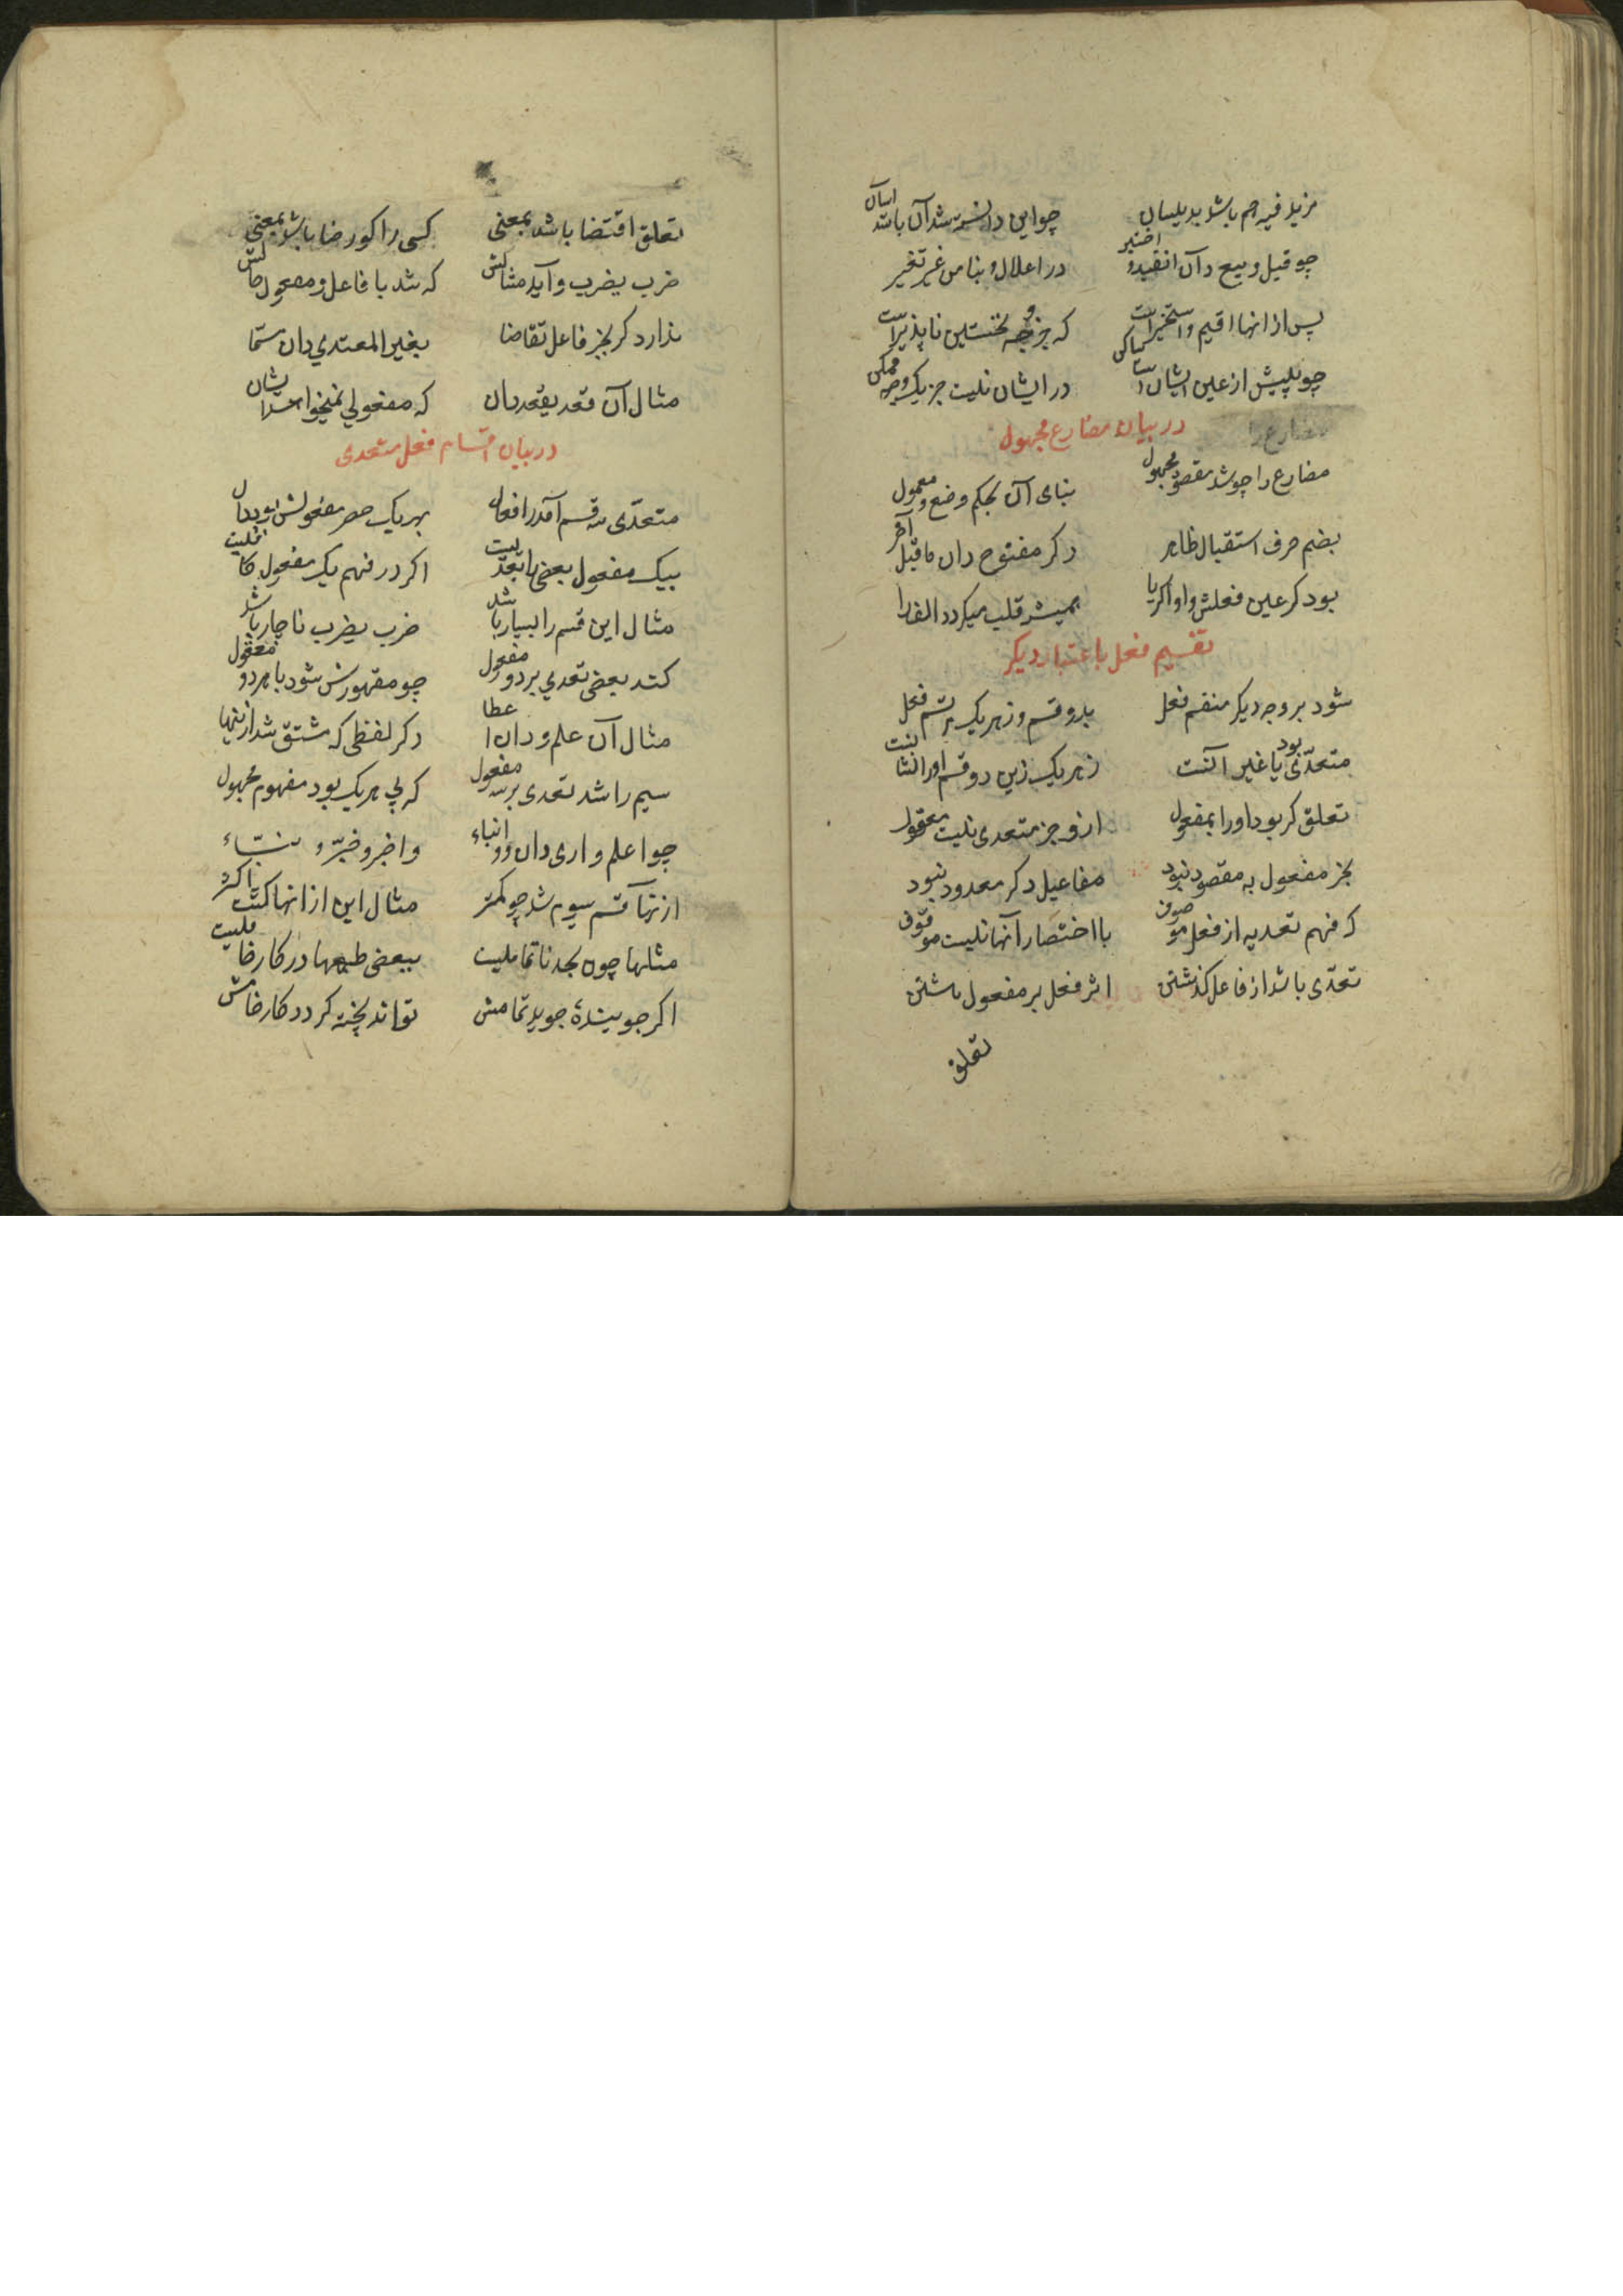 مزید فیه هم باشد بدیلسان چو این دانسته شد آن باشد اسان
چو قیل و بیع دان انقید و اختیر در اعلال و بنا من غیر تغیر
پس از انها اقیم و استخیراست که جز وجه نخستین ناپذیراست
چو پیش از عین ایشان است ساکن در ایشان نیست جز یک وجه ممکن
در بیان مضارع مجهول
مضارع را چو شد مقصود مجهول بنای آن بحکم وضع و معمول
بضم حرف استقبال ظاهر دکر مفتوح دان ماقبل آخر
بود کر عین فعلش واو اکر یا همیشه قلب میکردد الف را
تقسیم فعل باعتبار دیکر
شود بر وجه دیکر منقسم فعل بدو قسم و زهر یک قسم فعل
متعدّی بود یا غیر آنست زهر یک زین دو قسم او را نشانست
تعلق کر بود او را بمفعول ازو جز متعدی نیست معقول
بجز مفعول به مقصود نبود مفاعیل دکر معدود نبود
که فهم تعدیه از فعل موصوف با اختصار آنها نیست موقوف
تعدّی باشد از فاعل کذشتن اثر فعل بر مفعول
تعلق
تعلق اقتضا باشد بمعنی کسی را کو رضا باشد بمعنی
ضرب یضرب و آید مثالش که شد با فاعل و مفعول حالش
ندارد کر بجز فاعل تقاضا بغیر المعتدي دان
مثال آن قعد یقعد بدان که مفعولي نمیخواهد
در بیان اقسام فعل متعدی
متعدّی سه قسم آمد در افعال بهر یک حصر مفعولش بود دال
بیک مفعول بعضی را تعدّیست اکر در فهم یک مفعول کافیست
مثال این قسم را بسیار باشد ضرب یضرب ناچار باشد
کند بعضی تعدي بر دو مفعول چو مقهورش شود با هر دو معقول
مثال آن علم و دان اعطا دکر لفظی که مشتق شد ازینها
سیم را شد تعدی بر سه مفعول که بي هر یک بود مفهوم مجهول
چو اعلم و اری دان و انباء و اخبر و خبّر و نبّاء
ازنها قسم سیوم شد چو کمتر مثال این از انها کشت اکثر
مثلها چون بجد ناتمامیست ببعضی طبعها در کار خامیست
اکر جوینده جوید تمامش تواند پخته کردد کار خامش